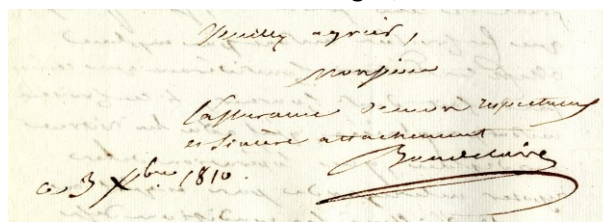 Veuillez agréer,
Monsieur
l'assurance de mon respectueux
et sincère attachement
ce 3 Xbre 1810.